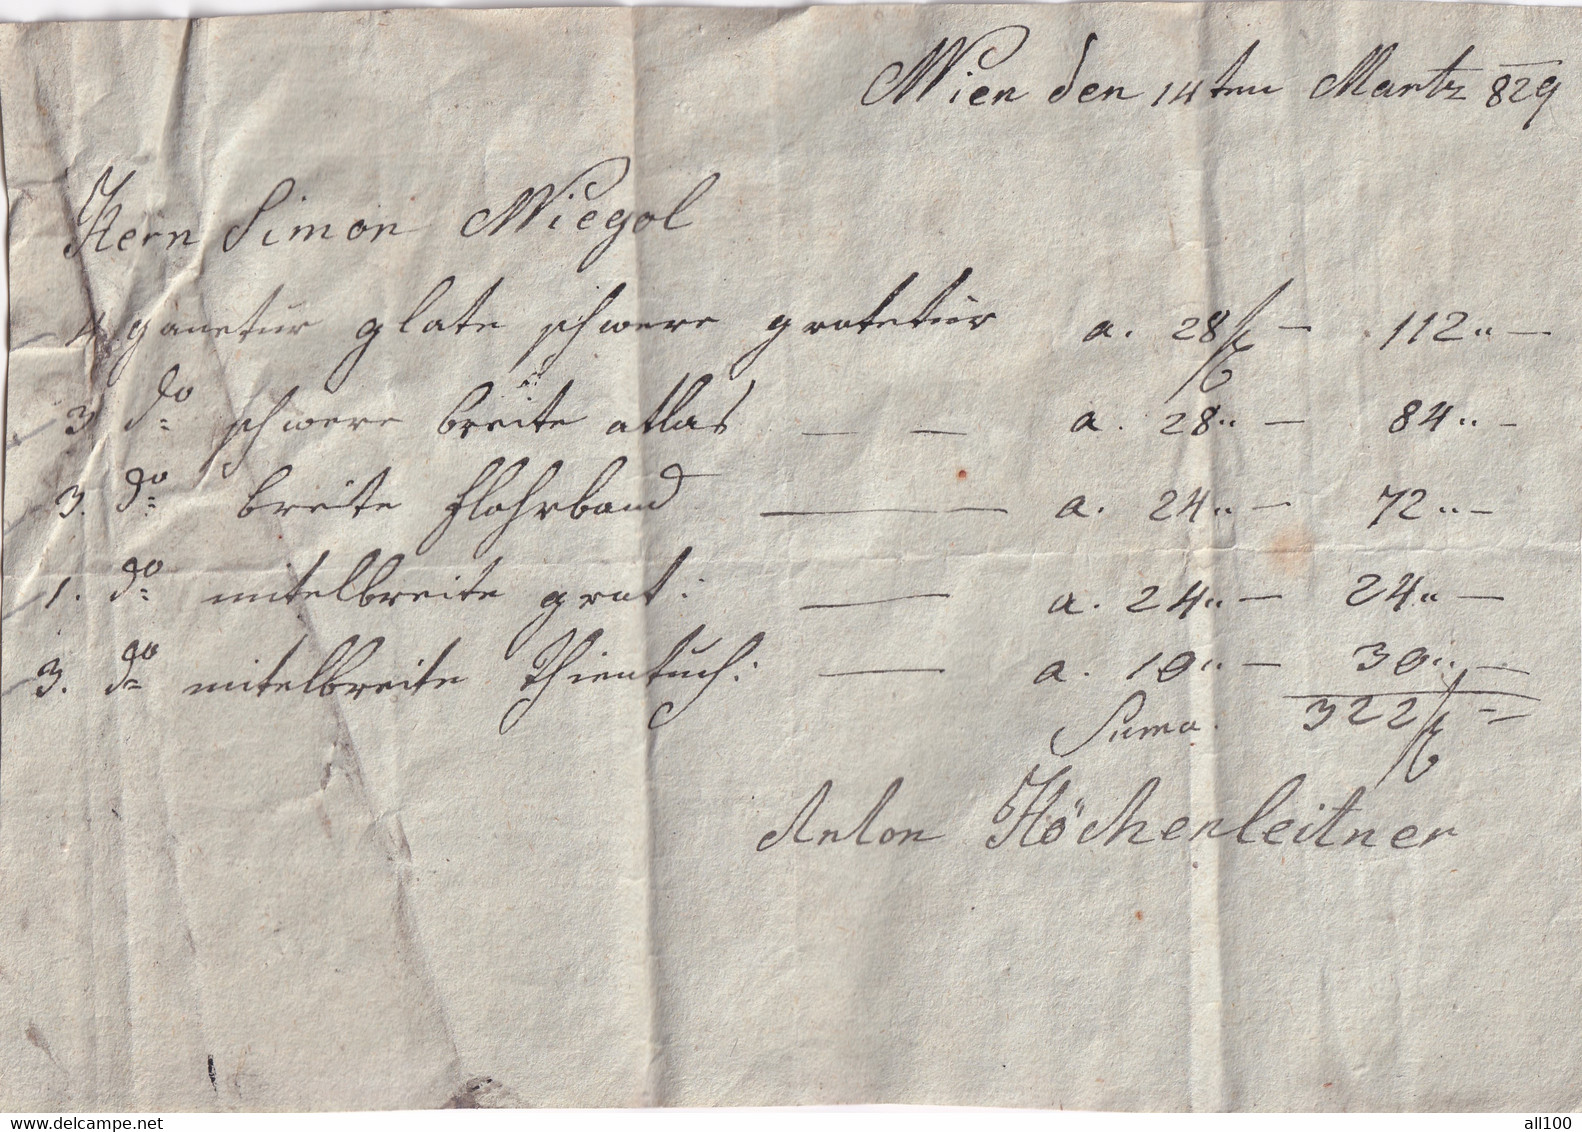 Wien den 14ten Martz 829
Hern Simon Wiegol
4 ganetur glate schwere a. 28 f — 112 " —
3 do schwere breite atlas — — a. 28 " — 84 " —
3. do breite flohrband — a. 24 " — 72 " —
1. do mitelbreite grat: — a. 24 " — 24 " —
3. do mitelbreite — a. 10 " — 30 " —
Suma. 322 f =
Anton Höchenleitner
www.delcampe.net
all100